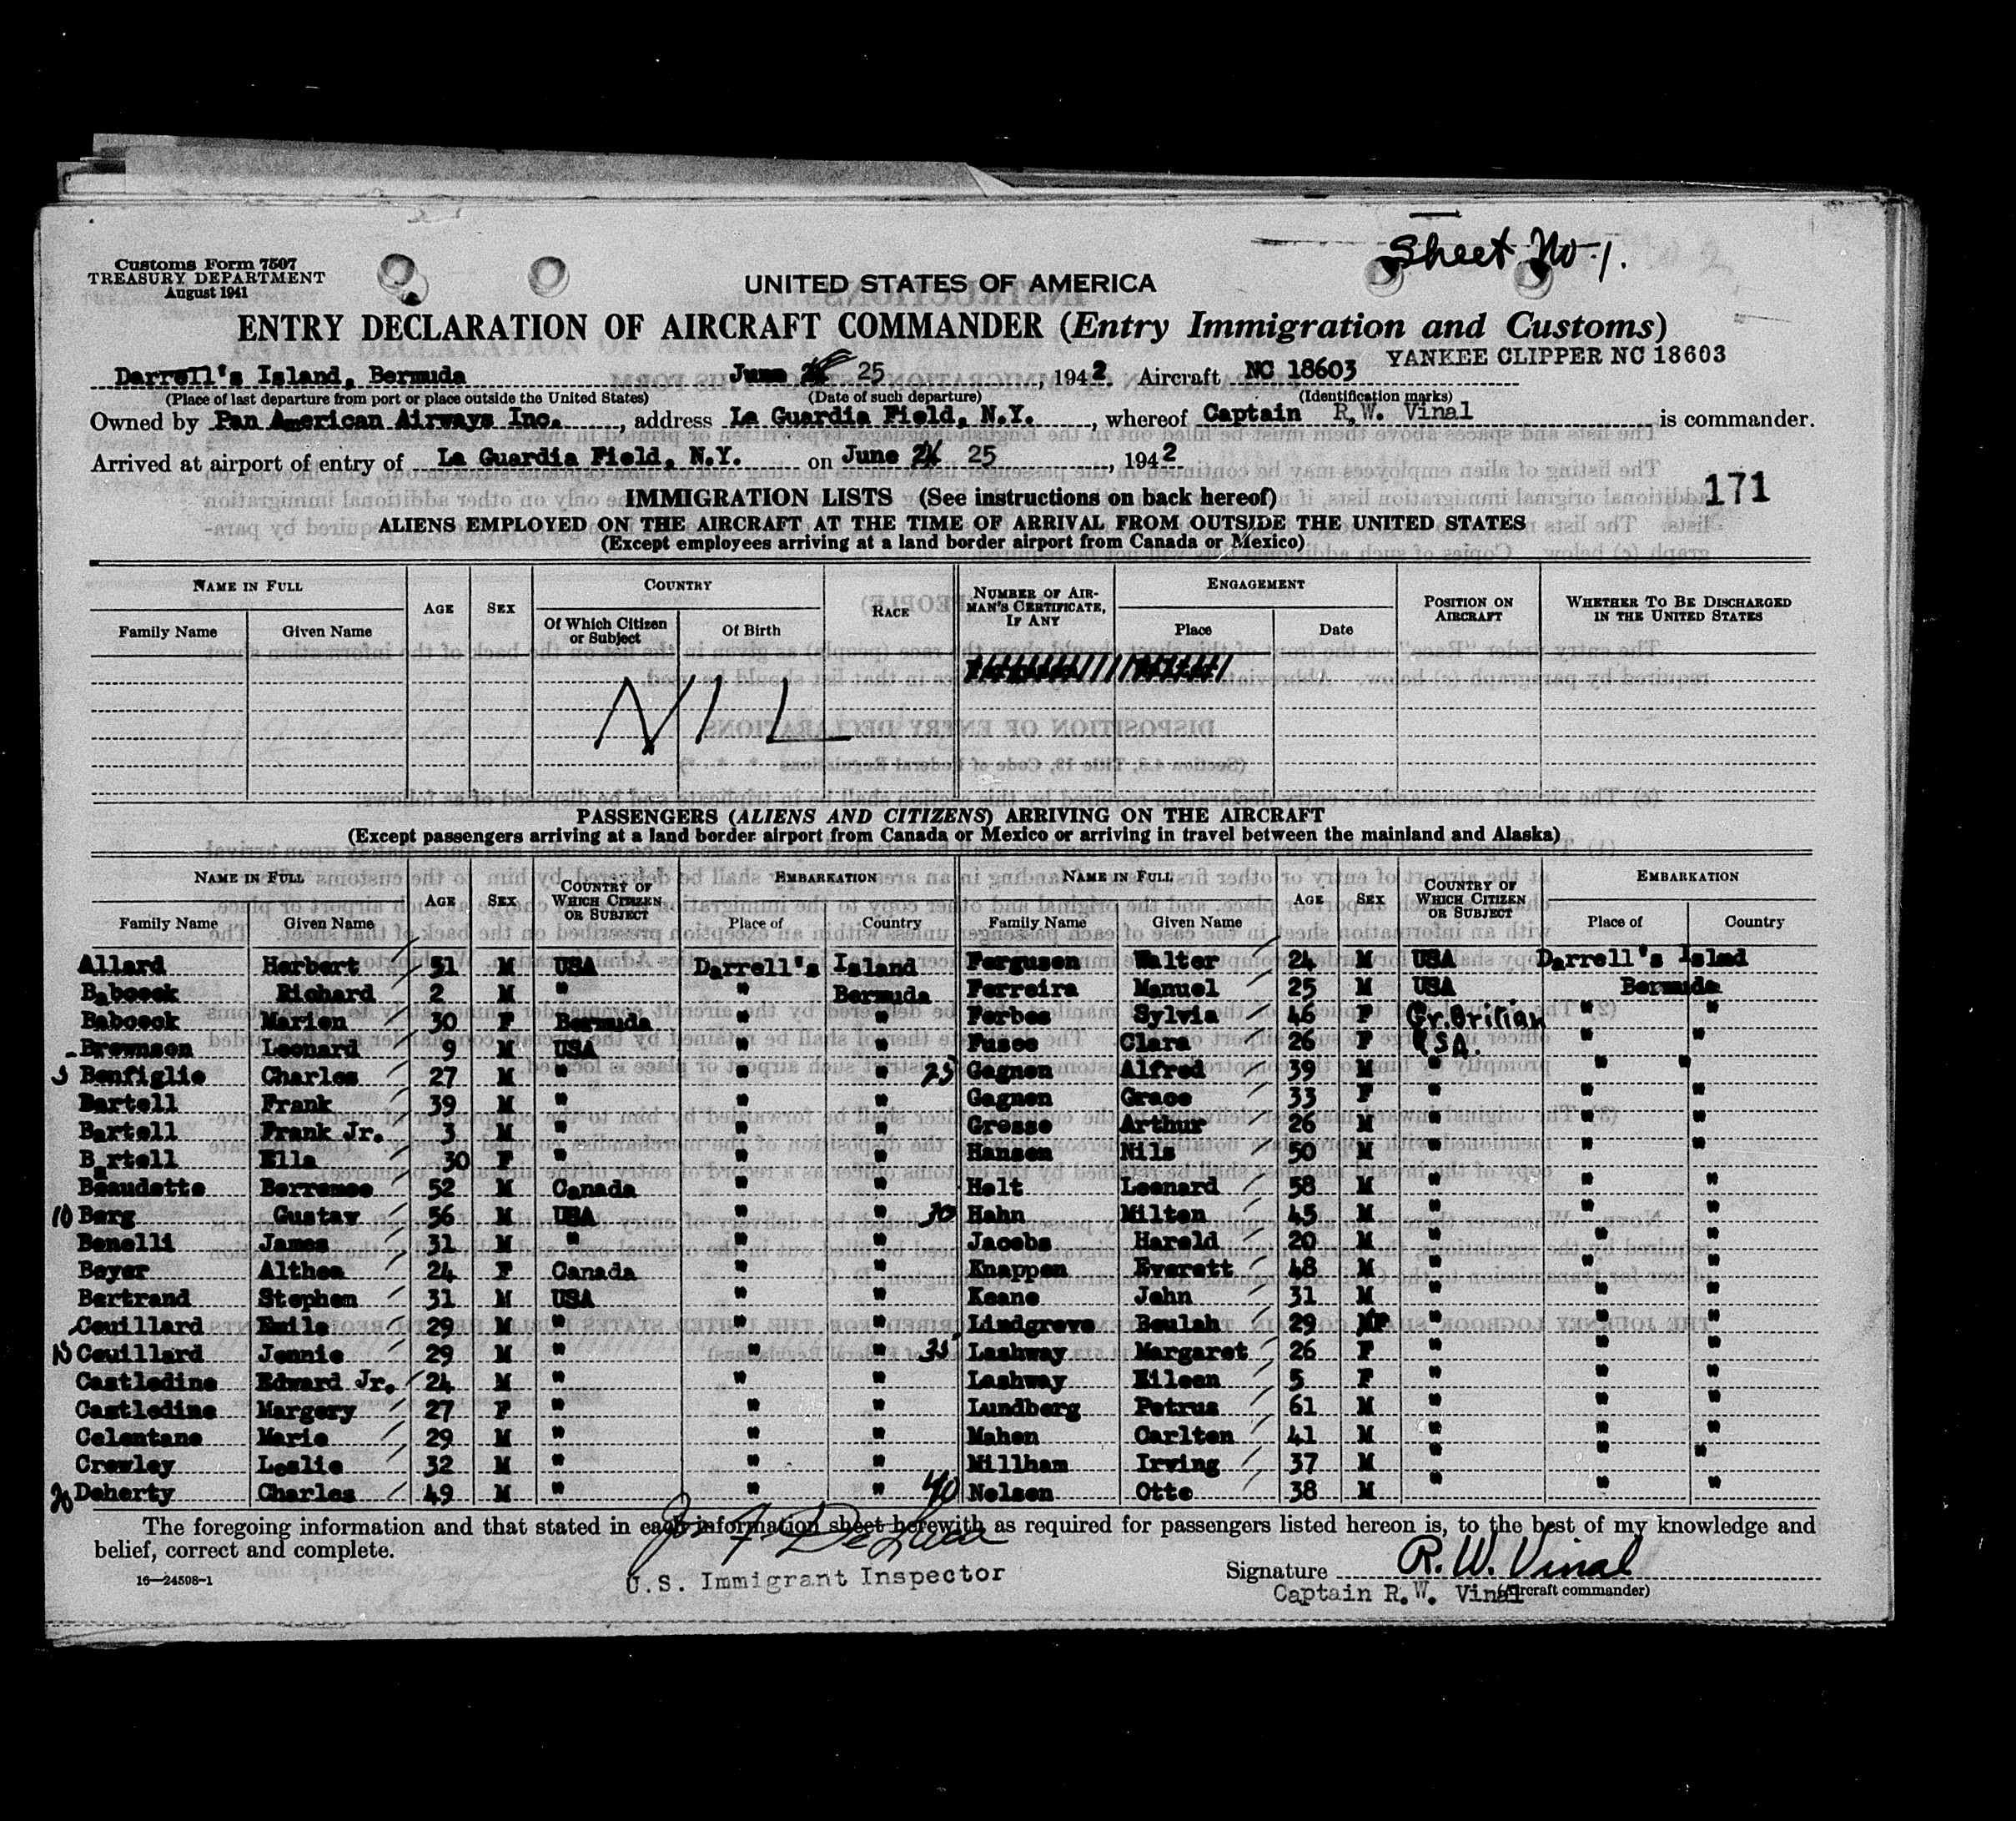 Sheet No 1.
Customs Form 7507
TREASURY DEPARTMENT
August 1941
UNITED STATES OF AMERICA
ENTRY DECLARATION OF AIRCRAFT COMMANDER (Entry Immigration and Customs)
YANKEE CLIPPER NC 18603
Darrell's Island, Bermuda June 25, 1942. Aircraft NC 18603
(Place of last departure from port or place outside the United States) (Date of such departure) (Identification marks)
Owned by Pan American Airways Inc., address La Guardia Field, N.Y., whereof Captain R.W. Vinal is commander.
Arrived at airport of entry of La Guardia Field, N.Y. on June 25, 1942
171
IMMIGRATION LISTS (See instructions on back hereof)
ALIENS EMPLOYED ON THE AIRCRAFT AT THE TIME OF ARRIVAL FROM OUTSIDE THE UNITED STATES
(Except employees arriving at a land border airport from Canada or Mexico)
NAME IN FULL AGE SEX COUNTRY RACE NUMBER OF AIRMAN'S CERTIFICATE, IF ANY ENGAGEMENT POSITION ON AIRCRAFT WHETHER TO BE DISCHARGED IN THE UNITED STATES
Family Name Given Name Of Which Citizen or Subject Of Birth Place Date
NIL
PASSENGERS (ALIENS AND CITIZENS) ARRIVING ON THE AIRCRAFT
(Except passengers arriving at a land border airport from Canada or Mexico or arriving in travel between the mainland and Alaska)
NAME IN FULL AGE SEX COUNTRY OF WHICH CITIZEN OR SUBJECT EMBARKATION NAME IN FULL AGE SEX COUNTRY OF WHICH CITIZEN OR SUBJECT EMBARKATION
Family Name Given Name Place of Country Family Name Given Name Place of Country
Allard Herbert 51 M USA Darrell's Island Ferguson Walter 24 M USA Darrell's Islnd
Babcock Richard 2 M " " Bermuda Ferreira Manuel 25 M USA Bermuda
Babcock Marion 30 F Bermuda " " Forbes Sylvia 46 F Gr. Britian " "
Brownson Leonard 9 M USA " " Fusco Clara 26 F USA. " "
5 Bonfiglio Charles 27 M " " " 25 Gagnon Alfred 39 M " " "
Bartell Frank 39 M " " " Gagnon Grace 33 F " " "
Bartell Frank Jr. 3 M " " " Grosso Arthur 26 M " " "
Bartell Ella 30 F " " " Hansen Nils 50 M " " "
Beaudette Berremee 52 M Canada " " Holt Leonard 58 M " " "
10 Berg Gustav 56 M USA " " 30 Hahn Milton 45 M " " "
Benelli James 31 M " " " Jacobs Harold 20 M " " "
Beyer Althea 24 F Canada " " Knappen Everett 48 M " " "
Bertrand Stephen 31 M USA " " Keane John 31 M " " "
Couillard Emile 29 M " " " Lindgreve Beulah 29 F " " "
15 Couillard Jennie 29 M " " " 35 Lashway Margaret 26 F " " "
Castledine Edward Jr. 24 M " " " Lashway Eileen 5 F " " "
Castledine Margery 27 F " " " Lundberg Petrus 61 M " " "
Celentane Marie 29 M " " " Mahon Carlton 41 M " " "
Crowley Leslie 32 M " " " Millham Irving 37 M " " "
20 Doherty Charles 49 M " " " 40 Nelson Otto 38 M " " "
The foregoing information and that stated in each information sheet herewith as required for passengers listed hereon is, to the best of my knowledge and
belief, correct and complete.
Signature R. W. Vinal
16—24508-1
U.S. Immigrant Inspector
Captain R.W. Vinal (Aircraft commander)